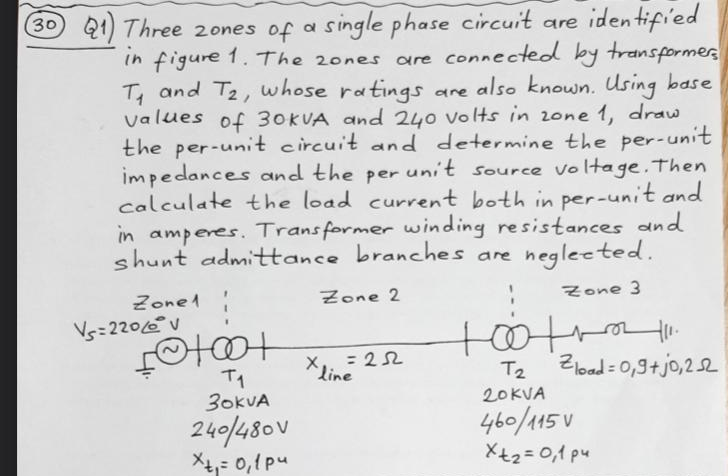 30 Q1) Three zones of a single phase circuit are identified
in figure 1. The zones are connected by transformers
T1 and T2, whose ratings are also known. Using base
values of 30KVA and 240 volts in zone 1, draw
the per-unit circuit and determine the per-unit
impedances and the per unit source voltage. Then
calculate the load current both in per-unit and
in amperes. Transformer winding resistances and
shunt admittance branches are neglected.
Zone1 Zone 2 Zone 3
Vs=220∠0° V
Xline = 2Ω
T1
30KVA
240/480V
Xt1=0,1pu
T2
20KVA
460/115V
Xt2=0,1pu
Zload=0,9+j0,2Ω